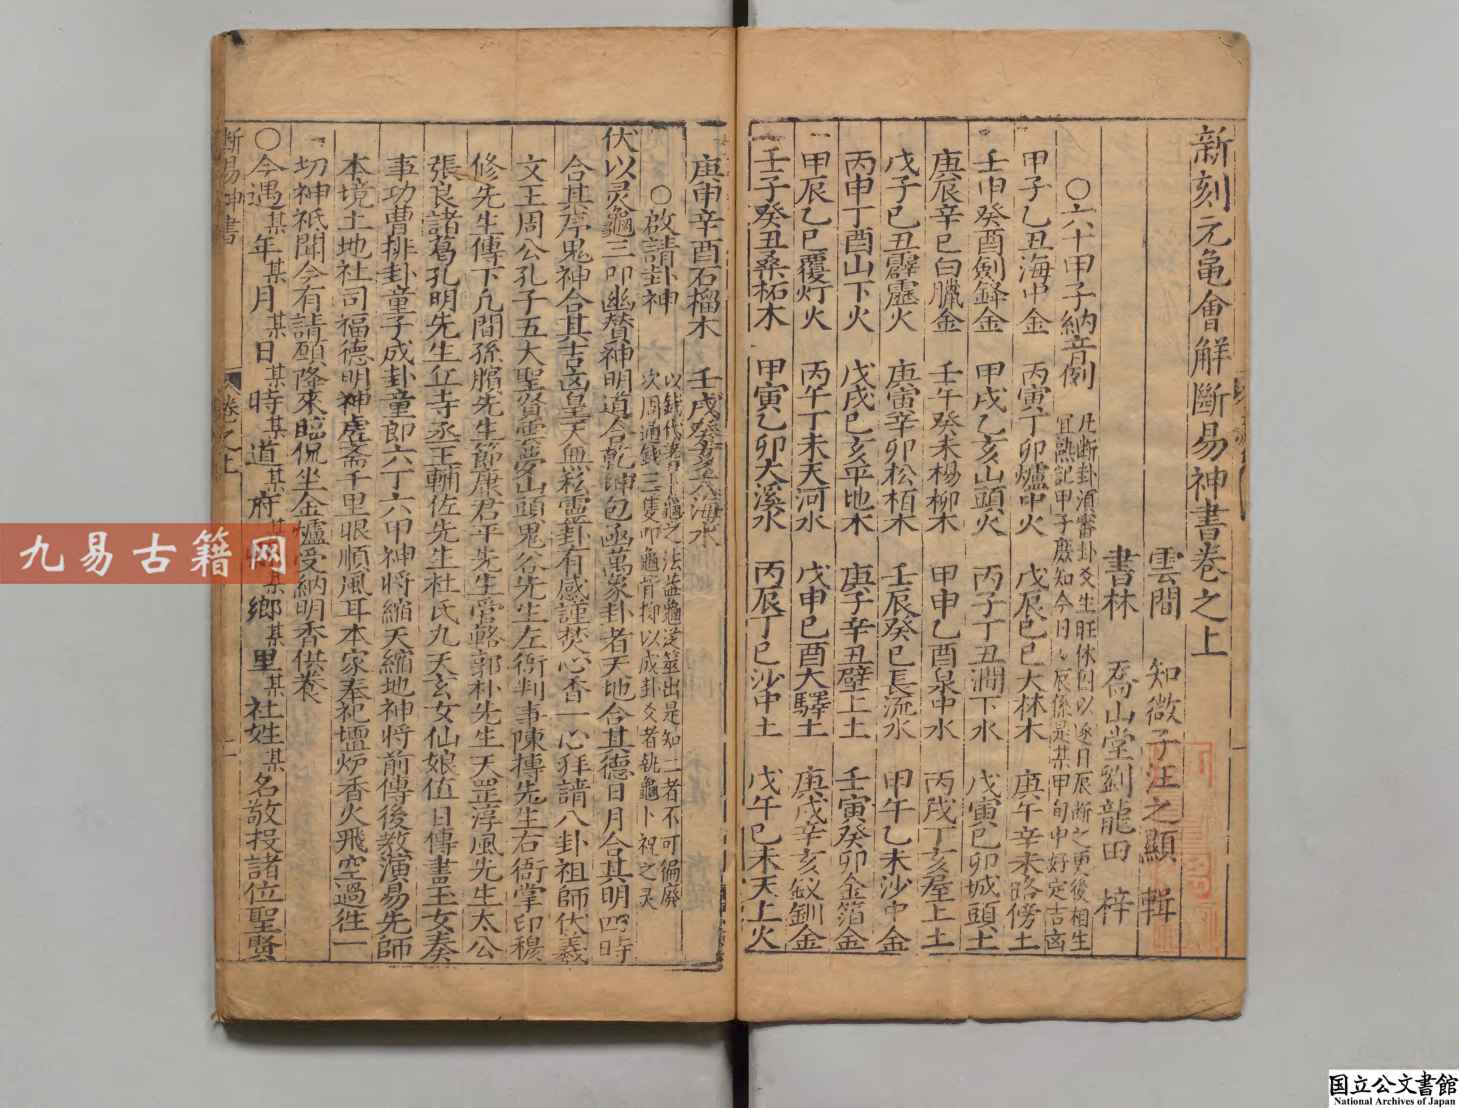 新刻元龜會解斷易神書卷之上
雲間 知微子汪之顯 輯
書林 喬山堂劉龍田 梓
○六十甲子納音例
凡斷卦須審卦爻生旺休囚以逐日辰断之更後相生
宜熟記甲子庶知今日辰係是某甲旬中好定吉凶
甲子乙丑海中金 丙寅丁卯爐中火 戊辰己巳大林木 庚午辛未路傍土
壬申癸酉劍鋒金 甲戌乙亥山頭火 丙子丁丑澗下水 戊寅己卯城頭土
庚辰辛巳白臘金 壬午癸未楊柳木 甲申乙酉泉中水 丙戌丁亥屋上土
戊子己丑霹靂火 庚寅辛卯松栢木 壬辰癸巳長流水 甲午乙未沙中金
丙申丁酉山下火 戊戌己亥平地木 庚子辛丑壁上土 壬寅癸卯金箔金
甲辰乙巳覆灯火 丙午丁未天河水 戊申己酉大驛土 庚戌辛亥釵釧金
壬子癸丑桑柘木 甲寅乙卯大溪水 丙辰丁巳沙中土 戊午己未天上火
庚申辛酉石榴木 壬戌癸亥大海水
○啟請卦神
以錢代蓍卜龜之法蓋龜筮出是知二者不可偏廢
次周通錢三隻叩龜背抑以成卦爻者執龜卜祝之天
伏以灵龜三叩幽賛神明道合乾坤包函萬象卦者天地合其德日月合其明四時
合其序鬼神合其吉凶皇天無私靈卦有感謹焚心香一心拜請八卦祖師伏羲
文王周公孔子五大聖賢雲夢山頭鬼谷先生左衙判事陳摶先生右衙掌印穆
修先生傳下凢間孫臏先生節康君平先生管輅郭朴先生天罡淳風先生太公
張良諸葛孔明先生丘寺丞王輔佐先生杜氏九天玄女仙娘值日傳書玉女奏
事功曹排卦童子成卦童郎六丁六甲神將縮天縮地神將前傳後教演易先師
本境土地社司福德明神虗斋千里眼順風耳本家奉祀壇炉香火飛空過徃一
切神祇聞今有請願降來臨侃坐金爐受納明香供養
○今遇某年某月某日某時某道某府某郷某里某社姓某名敬投諸位聖賢
斷易神書
卷之上
一
九易古籍网
国立公文書館
National Archives of Japan